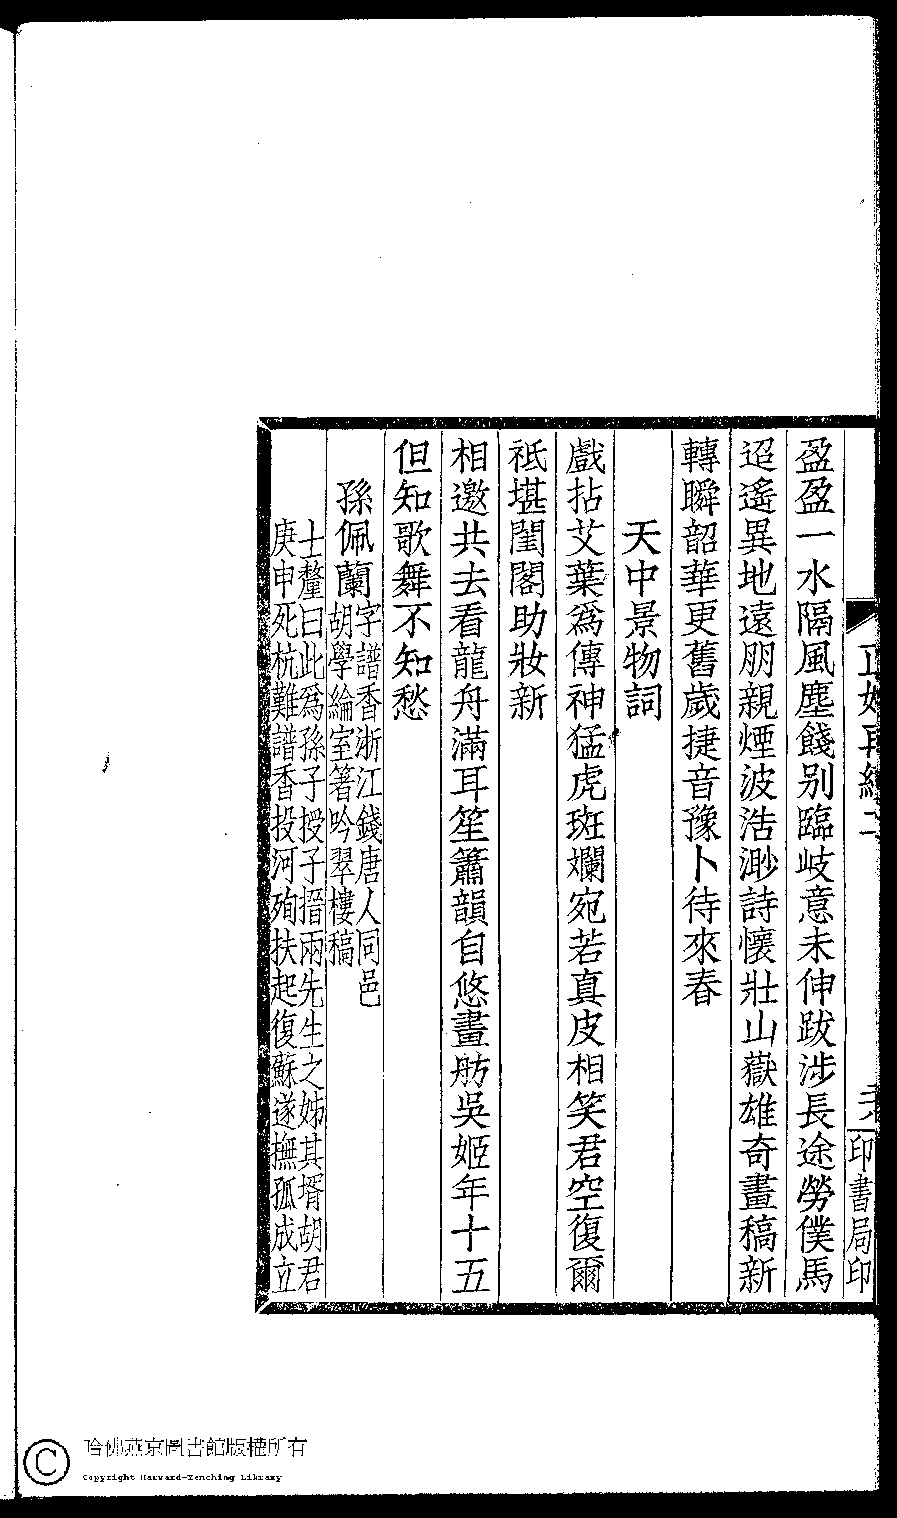 盈盈一水隔風塵餞别臨岐意未伸跋涉長途勞僕馬
迢遙異地遠朋親煙波浩渺詩懷壯山嶽雄奇畫稿新
轉瞬韶華更舊歲捷音豫卜待來春
天中景物詞
戲拈艾葉爲傳神猛虎斑斕宛若真皮相笑君空復爾
祗堪閨閣助妝新
相邀共去看龍舟滿耳笙簫韻自悠畫舫吳姬年十五
但知歌舞不知愁
孫佩蘭
字譜香浙江錢唐人同邑
胡學綸室箸吟翠樓稿
士釐曰此爲孫子授子搢兩先生之姊其壻胡君
庚申死杭難譜香投河殉扶起復蘇遂撫孤成立
印書局印
哈佛燕京圖書館版權所有
Copyright Harvard-Yenching Library